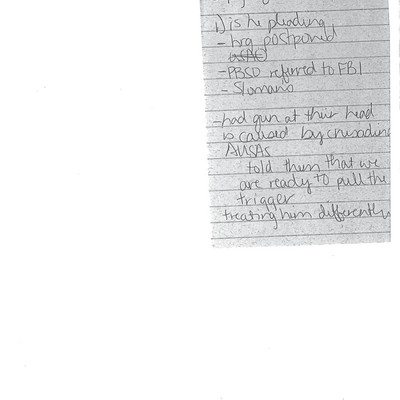 1) is he pleading
- hrg postponed
- PBSO referred to FBI
- Slomans
- had gun at their head
is caused by crusading
AUSAs
told them that we
are ready to pull the
trigger
treating him differently